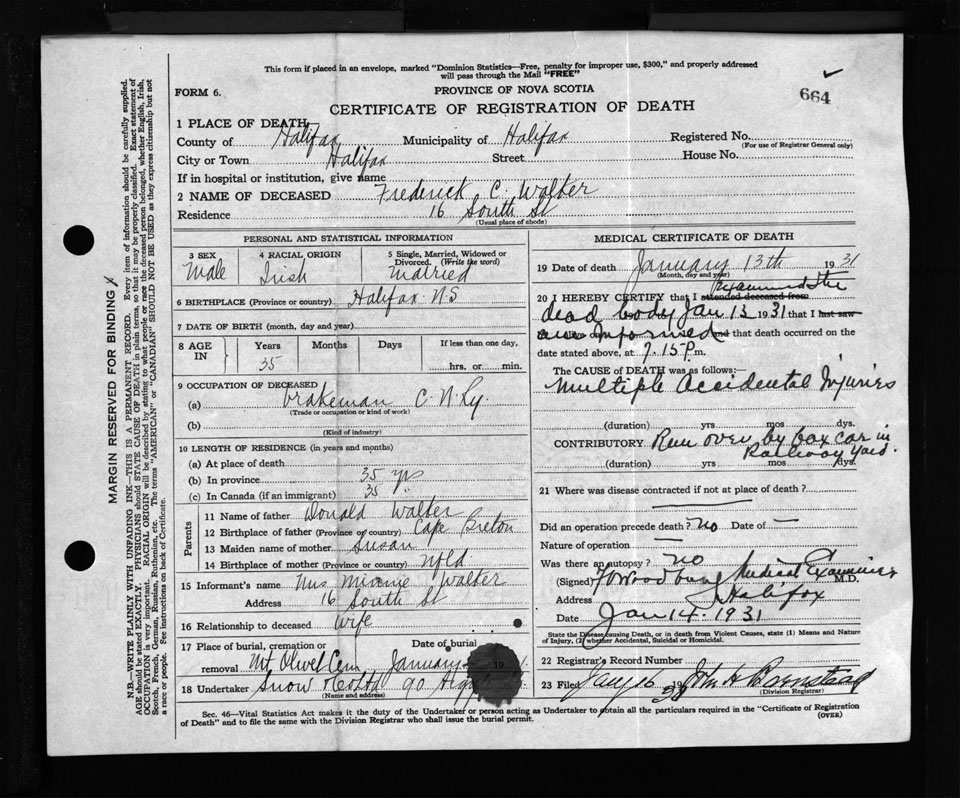 This form if placed in an envelope, marked "Dominion Statistics—Free, penalty for improper use, $300," and properly addressed
will pass through the Mail "FREE"
FORM 6.
PROVINCE OF NOVA SCOTIA
664
CERTIFICATE OF REGISTRATION OF DEATH
1 PLACE OF DEATH
County of Halifax Municipality of Halifax Registered No.
(For use of Registrar General only)
City or Town Halifax Street House No.
If in hospital or institution, give name
2 NAME OF DECEASED Frederick C. Walter
Residence 16 South St
(Usual place of abode)
PERSONAL AND STATISTICAL INFORMATION
3 SEX 4 RACIAL ORIGIN 5 Single, Married, Widowed or
Divorced. (Write the word)
Male Irish Married
6 BIRTHPLACE (Province or country) Halifax N.S
7 DATE OF BIRTH (month, day and year)
8 AGE IN Years Months Days If less than one day,
35 hrs. or min.
9 OCCUPATION OF DECEASED
(a) brakeman C. N. Ry.
(Trade or occupation or kind of work)
(b)
(Kind of industry)
10 LENGTH OF RESIDENCE (in years and months)
(a) At place of death
(b) In province 35 yrs
(c) In Canada (if an immigrant) 35
Parents
11 Name of father Donald Walter
12 Birthplace of father (Province or country) Cape Breton
13 Maiden name of mother Susan
14 Birthplace of mother (Province or country) Nfld
15 Informant's name Mrs Minnie Walter
Address 16 South St
16 Relationship to deceased Wife
17 Place of burial, cremation or Date of burial
removal Mt Olivet Cem January 19
18 Undertaker Snow 90
(Name and address)
MEDICAL CERTIFICATE OF DEATH
19 Date of death January 13th 1931
(Month, day and year)
20 I HEREBY CERTIFY that I attended deceased from Examined the
dead body Jan 13 1931 that I last saw
alive on informed and that death occurred on
date stated above, at 7.15 P.m.
The CAUSE of DEATH was as follows:
Multiple Accidental Injuries
(duration) yrs mos days.
CONTRIBUTORY Run over by box car in
Railway Yard.
(duration) yrs mos days.
21 Where was disease contracted if not at place of death?
Did an operation precede death? No Date of —
Nature of operation —
Was there an autopsy? No
(Signed) Medical Examiner M.D.
Address Halifax
Date Jan 14. 1931
State the Disease causing Death, or in death from Violent Causes, state (1) Means and Nature
of Injury, (2) whether Accidental, Suicidal or Homicidal.
22 Registrar's Record Number
23 Filed Jany 16 1931 John H Barnstead
(Division Registrar)
Sec. 46—Vital Statistics Act makes it the duty of the Undertaker or person acting as Undertaker to obtain all the particulars required in the "Certificate of Registration
of Death" and to file the same with the Division Registrar who shall issue the burial permit.
(OVER)
MARGIN RESERVED FOR BINDING
N.B.—WRITE PLAINLY WITH UNFADING INK—THIS IS A PERMANENT RECORD. Every item of information should be carefully supplied.
AGE should be stated EXACTLY. PHYSICIANS should STATE CAUSE OF DEATH in plain terms, so that it may be properly classified. Exact statement of
OCCUPATION is very important. RACIAL ORIGIN will be described by stating to what people or race the deceased person belonged, whether English, Irish,
Scotch, French, German, Russian, Ruthenian, etc. The terms "AMERICAN" or "CANADIAN" SHOULD NOT BE USED as they express citizenship but not
a race or people. See instructions on back of Certificate.